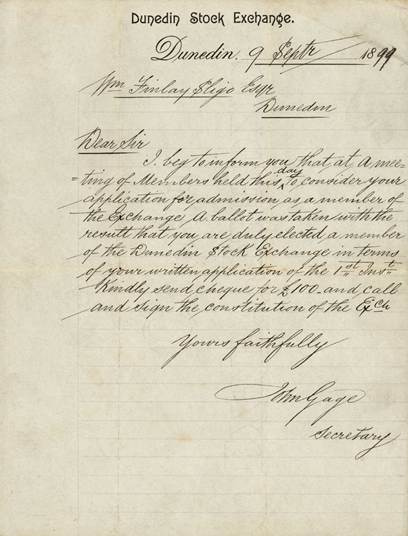 Dunedin Stock Exchange.
Dunedin. 9 Septr 1899
Wm Finlay Sligo Esqr
Dunedin
Dear Sir
I beg to inform you that at a mee-
-ting of Members held this day to consider your
application for admission as a member of
the Exchange, a ballot was taken with the
result that you are duly elected a member
of the Dunedin Stock Exchange in terms
of your written application of the 1st Inst.
Kindly send cheque for £100. and call
and sign the constitution of the Exch
Yours faithfully
John Gage
Secretary